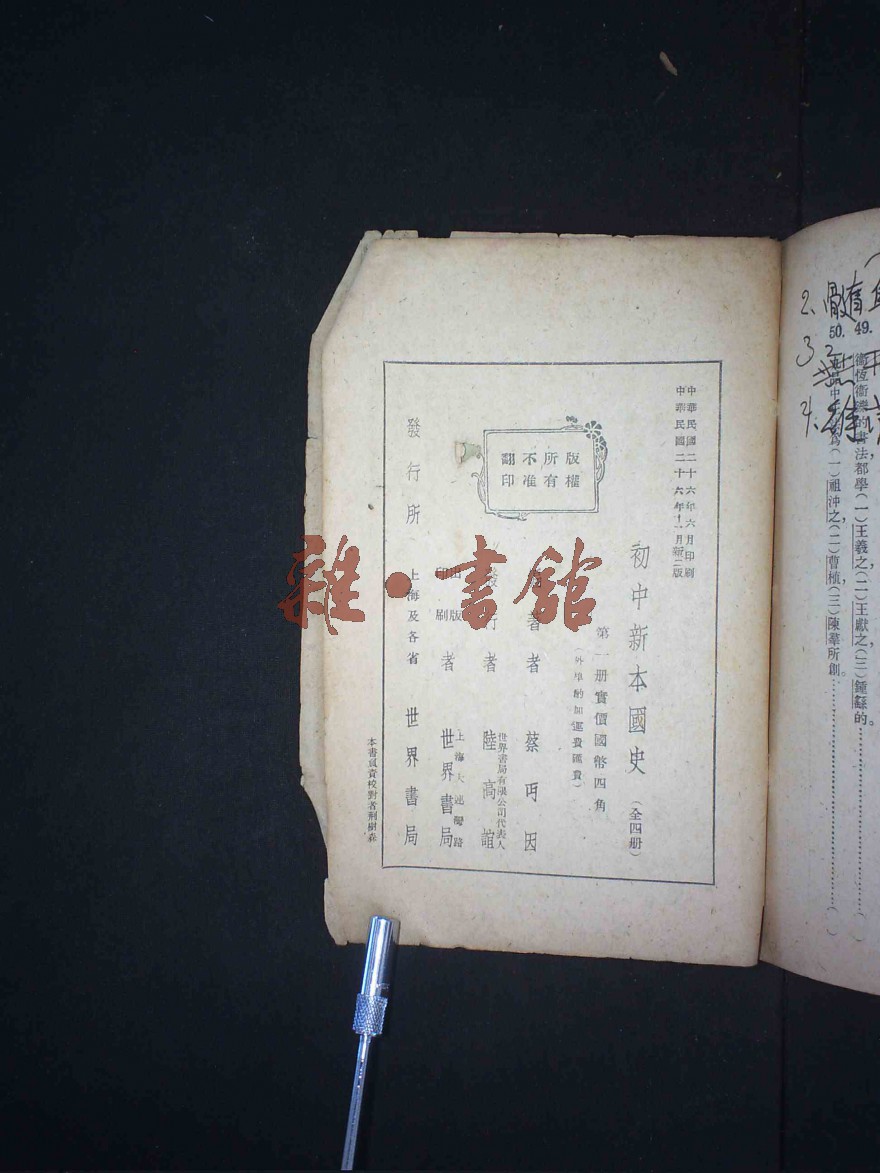 2.
3.
4.
49.
衞恆衞瓘的書法都學(一)王羲之(二)王獻之(三)鍾繇的。…………( )
50.
九品中正爲(一)祖沖之,(二)曹植,(三)陳羣所創。…………( )
中華民國二十六年六月印刷
中華民國二十六年十一月新二版
初中新本國史(全四册)
第一册實價國幣四角
(外埠酌加運費匯費)
版權所有
不准翻印
著者 蔡丏因
發行者 陸高誼
世界書局有限公司代表人
出版
印刷者 世界書局
上海大連灣路
發行所 上海及各省 世界書局
本書負責校對者荆樹森
雜·書館